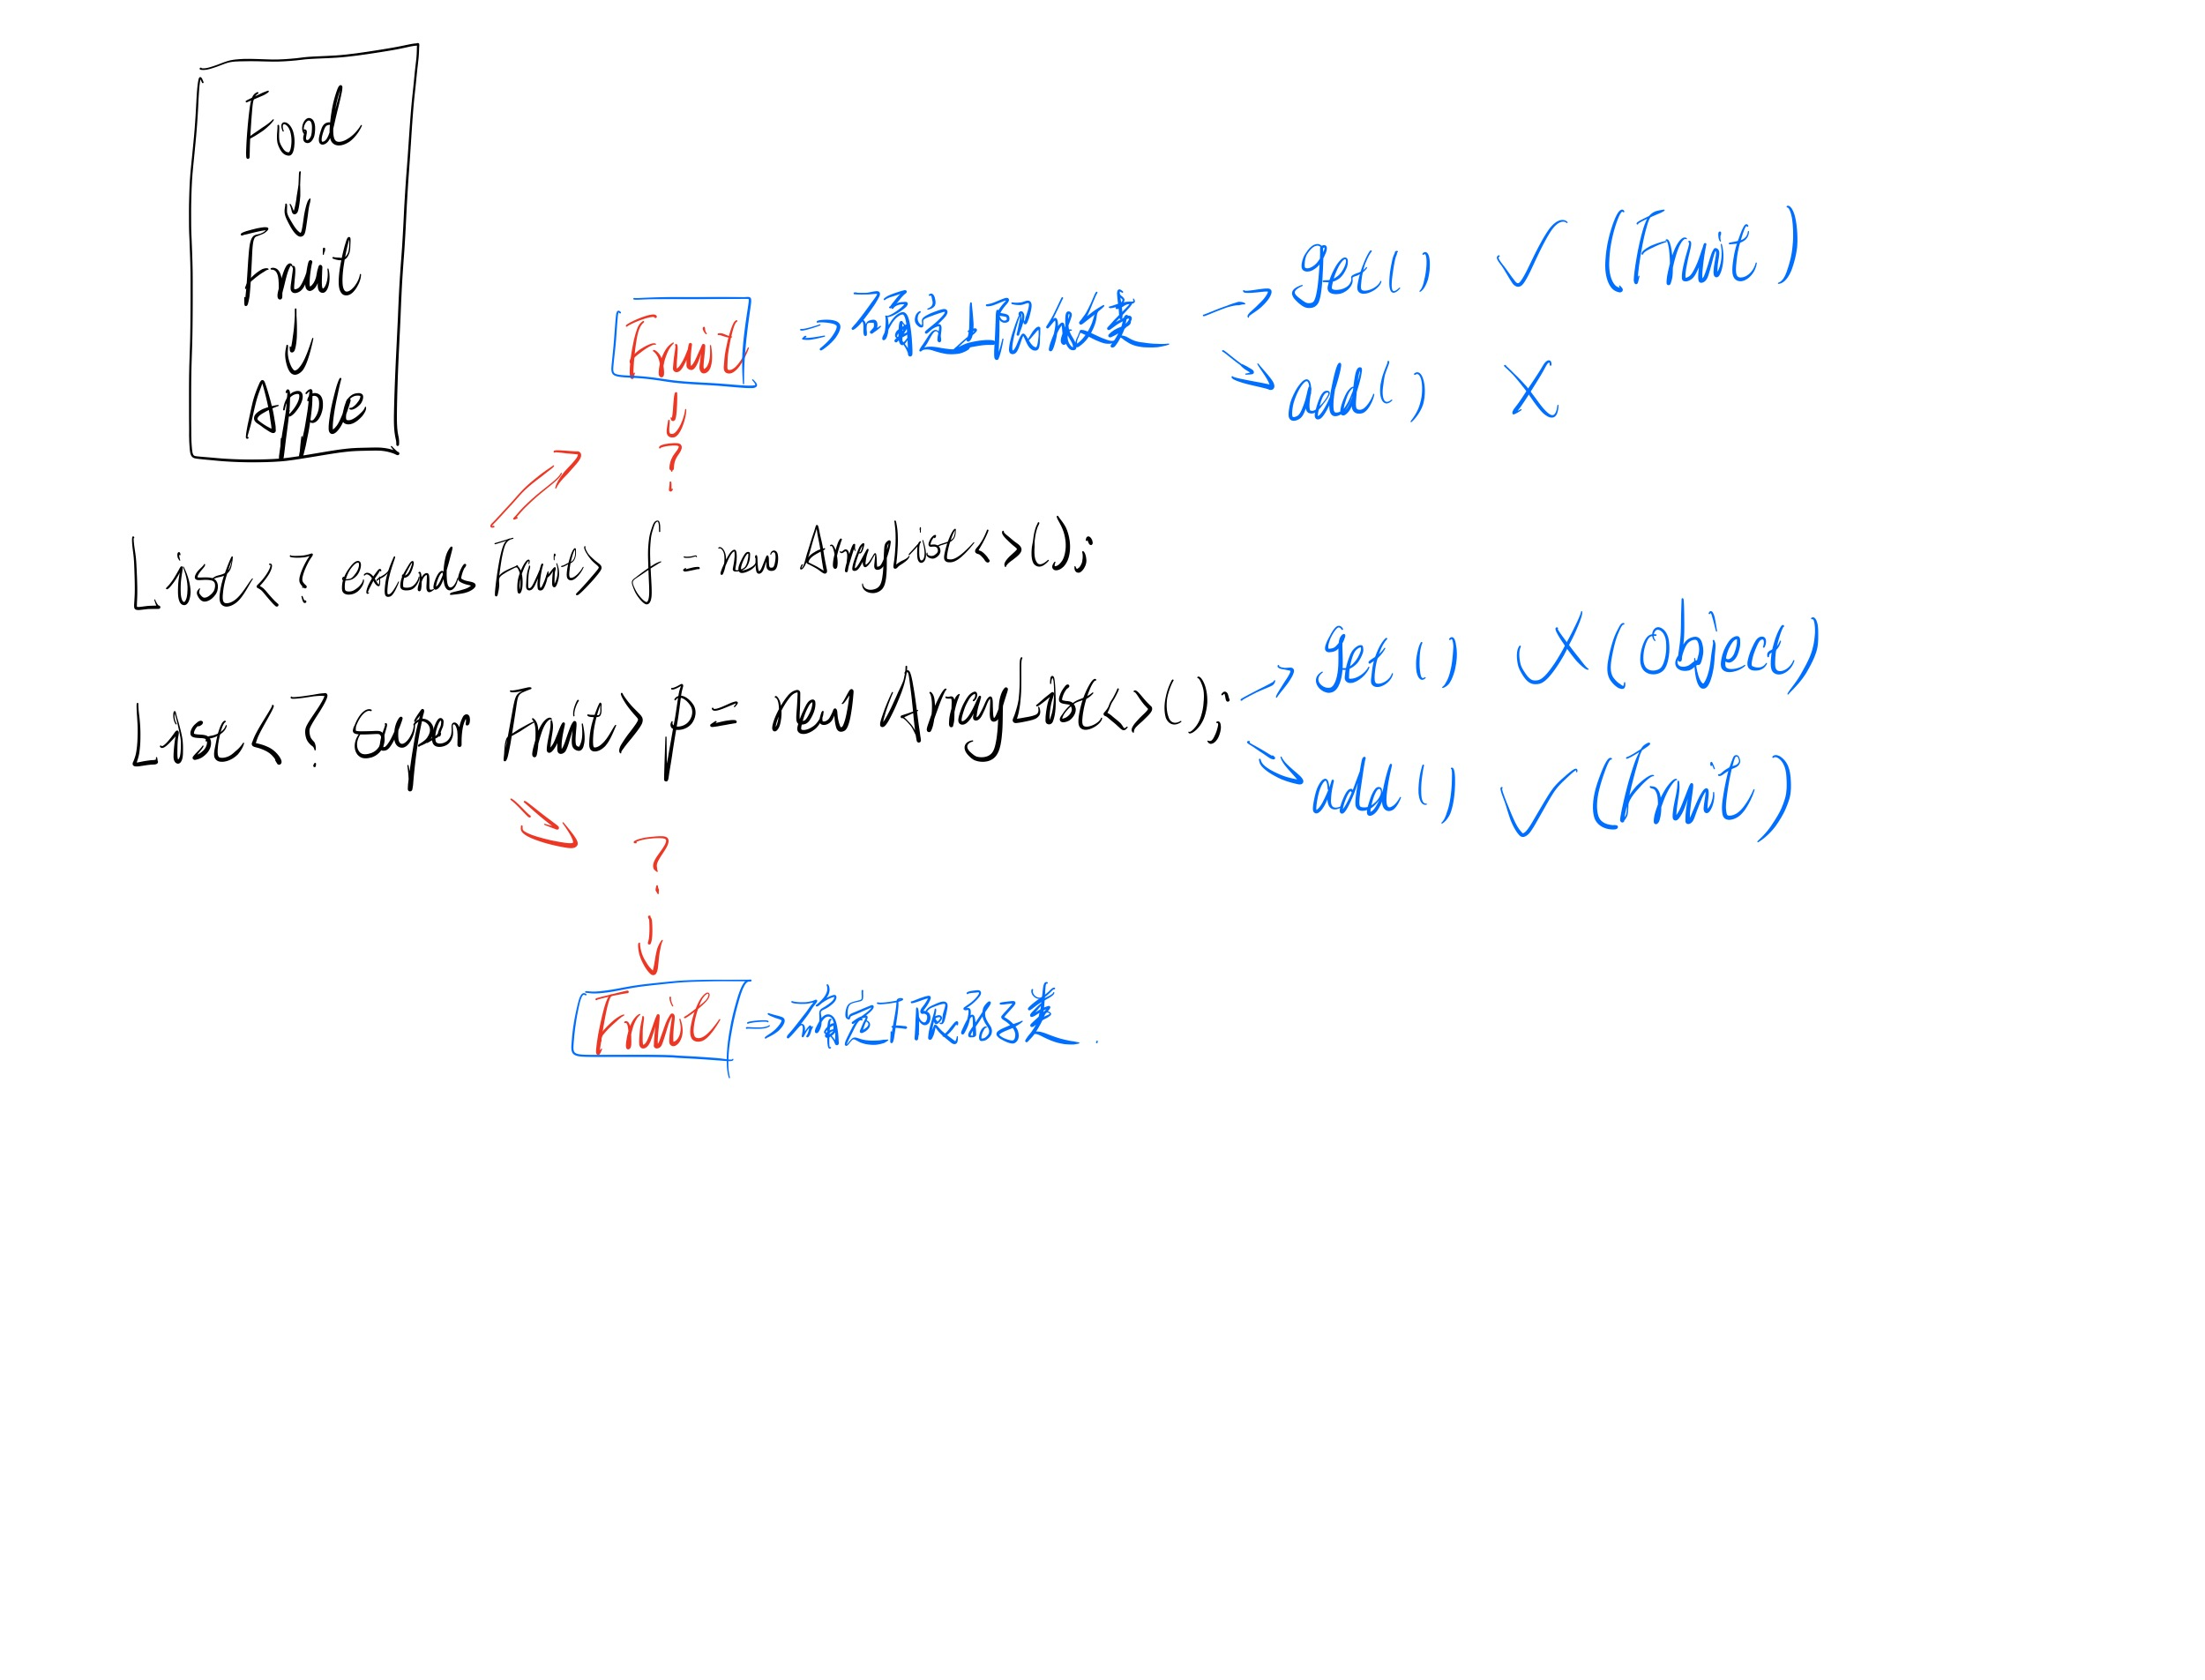 Food
Fruit
Apple
Fruit ⇒ 确定上限的类
get() ✓ (Fruit)
add() ✗
?
List<? extends Fruit> f = new ArrayList<>();
List<? super Fruit> p = new ArrayList<>();
get() ✗ (object)
add() ✓ (Fruit)
?
Fruit ⇒ 确定下限的类.